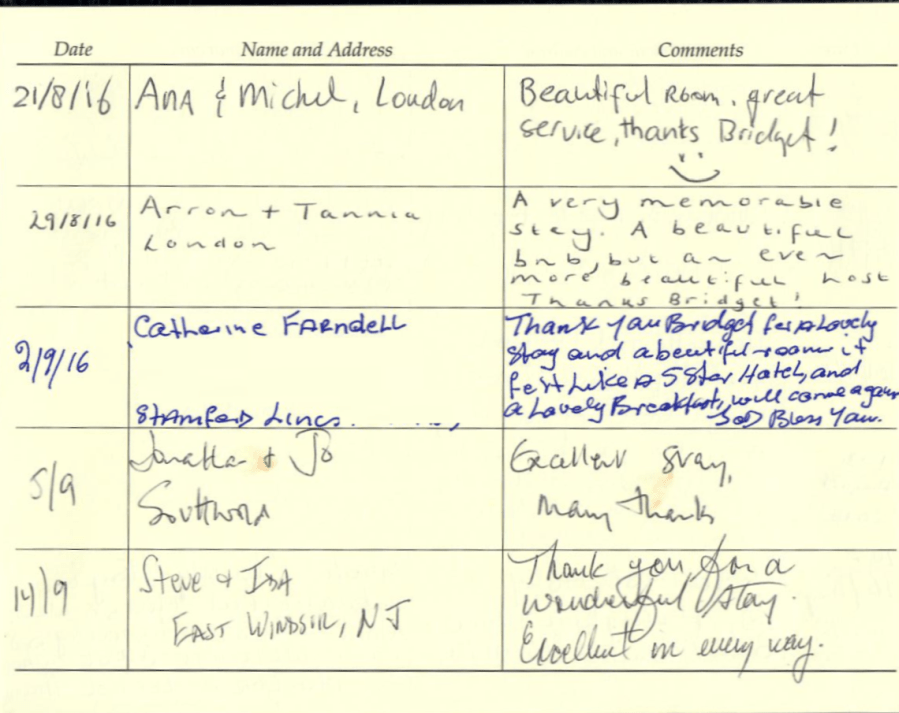 Date Name and Address Comments
21/8/16 Ana & Michel, London Beautiful Room. great
service, thanks Bridget!
29/8/16 Arron + Tannia A very memorable
London stay. A beautiful
bnb, but an even
more beautiful host
Thanks Bridget!
2/9/16 Catherine Farndell Thank You Bridget for a Lovely
stay and a beautiful room it
felt Like a 5 Star Hotel, and
Stamford Lincs. a Lovely Breakfast, will come again
God Bless You.
5/9 & Jo Excellent stay,
Southwold Many thanks
14/9 Steve & Ina Thank you for a
East Windsor, NJ wonderful stay.
Excellent in every way.